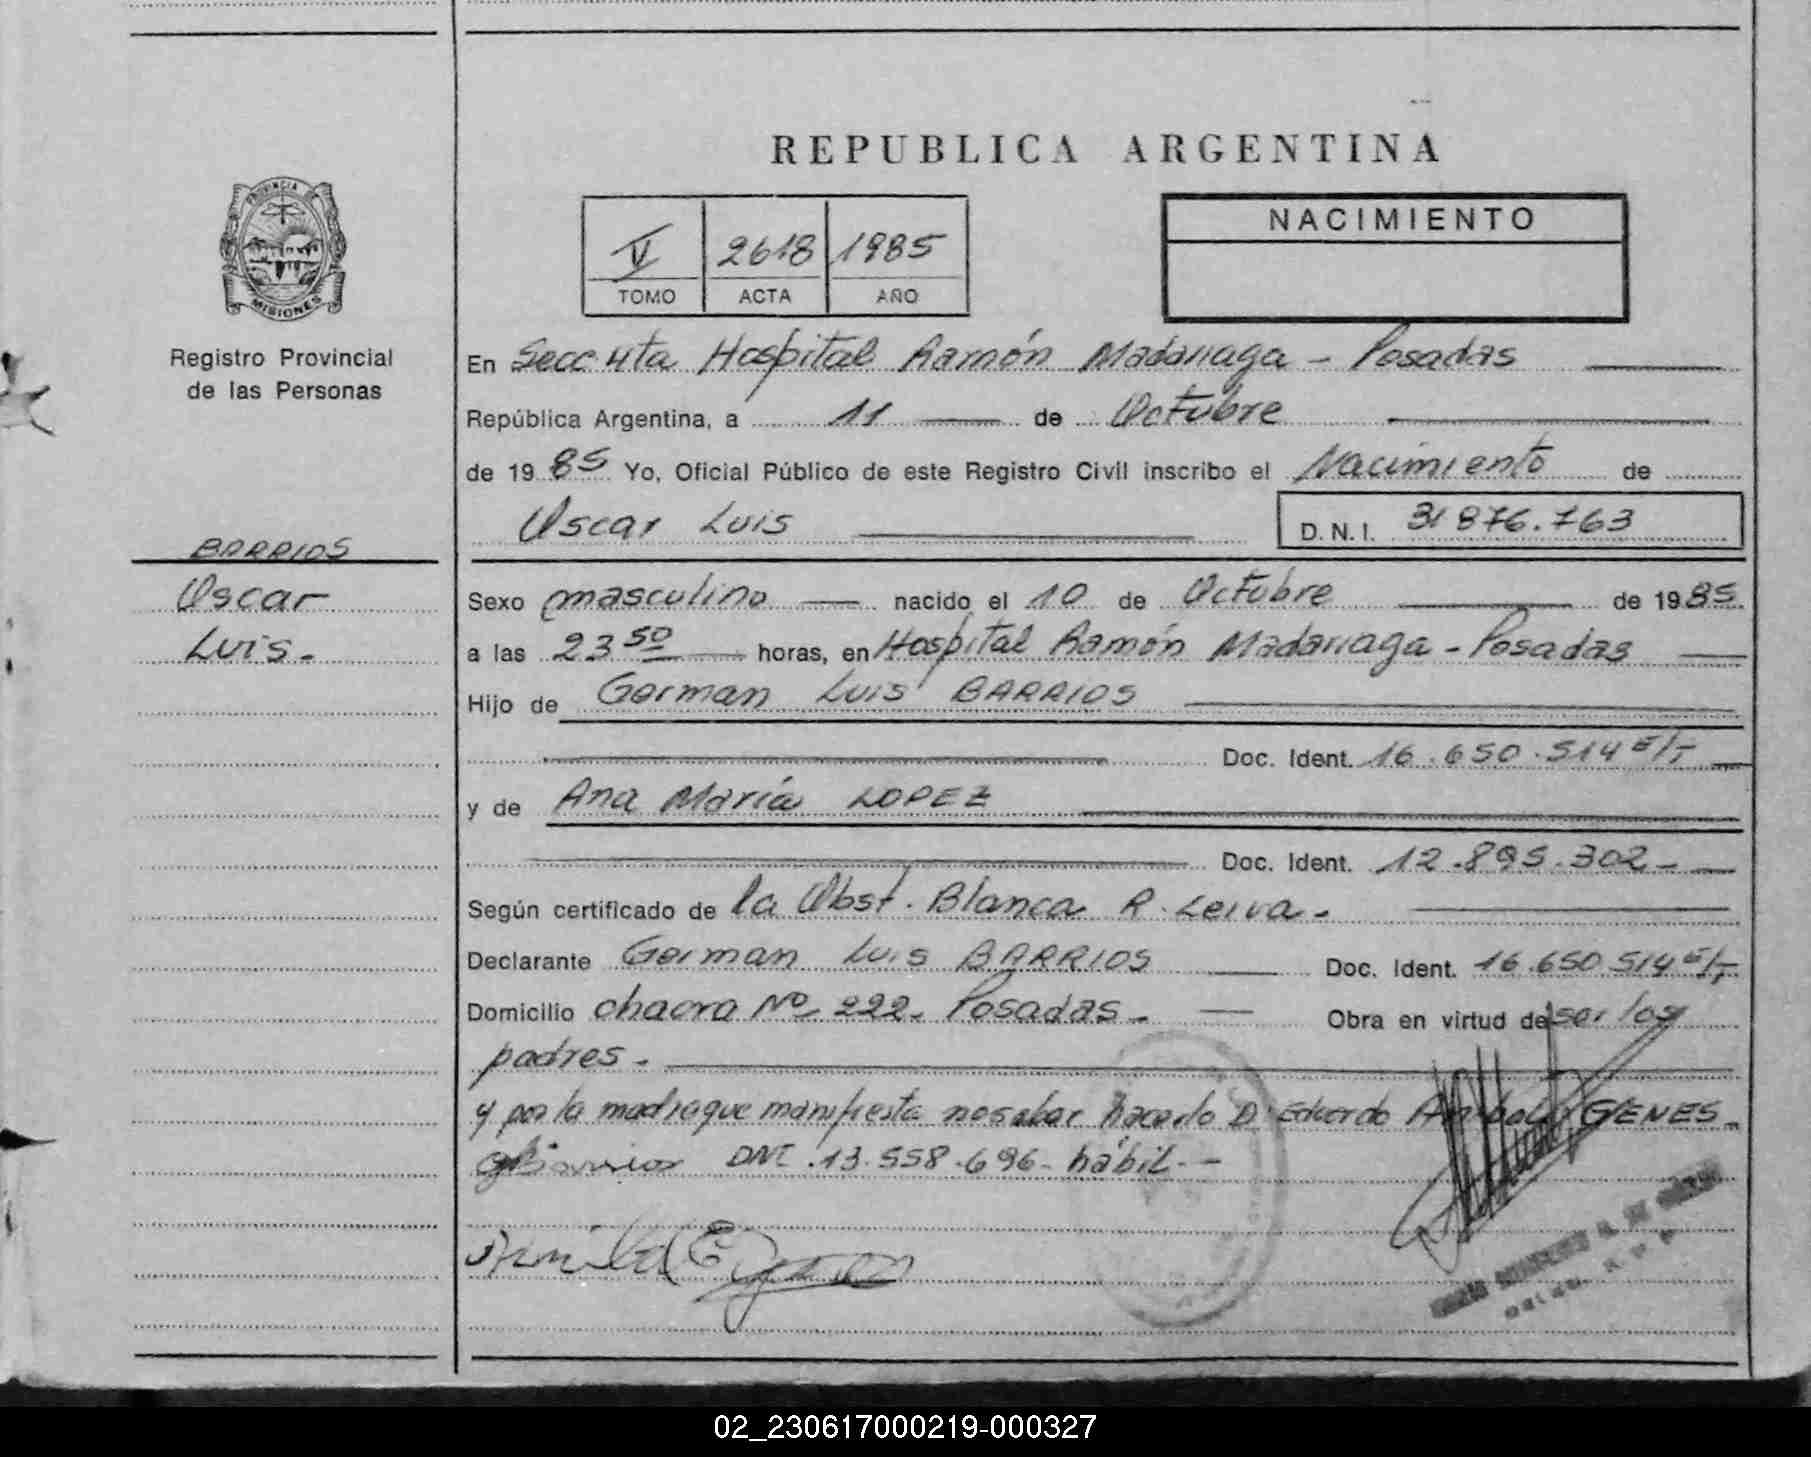 REPUBLICA ARGENTINA
PROVINCIA DE
MISIONES
Registro Provincial
de las Personas
V 2618 1985
TOMO ACTA AÑO
NACIMIENTO
En Secc 4ta Hospital Ramón Madariaga - Posadas
República Argentina, a 11 de Octubre
de 1985 Yo, Oficial Público de este Registro Civil inscribo el Nacimiento de
Oscar Luis D.N.I. 31 876.763
BARRIOS
Oscar
Luis.
Sexo masculino nacido el 10 de Octubre de 1985
a las 23 50 horas, en Hospital Ramón Madariaga - Posadas
Hijo de German Luis BARRIOS
Doc. Ident. 16.650.514
y de Ana María LOPEZ
Doc. Ident. 12.895.302 -
Según certificado de la Obst. Blanca R. Leiva.
Declarante German Luis BARRIOS Doc. Ident. 16.650.514
Domicilio chacra Nº 222. Posadas. Obra en virtud de ser los
padres.
y por la madre que manifiesta no saber hacerlo D. Eduardo Anibal GENES
DNI .13.558.696- hábil.-
02_230617000219-000327